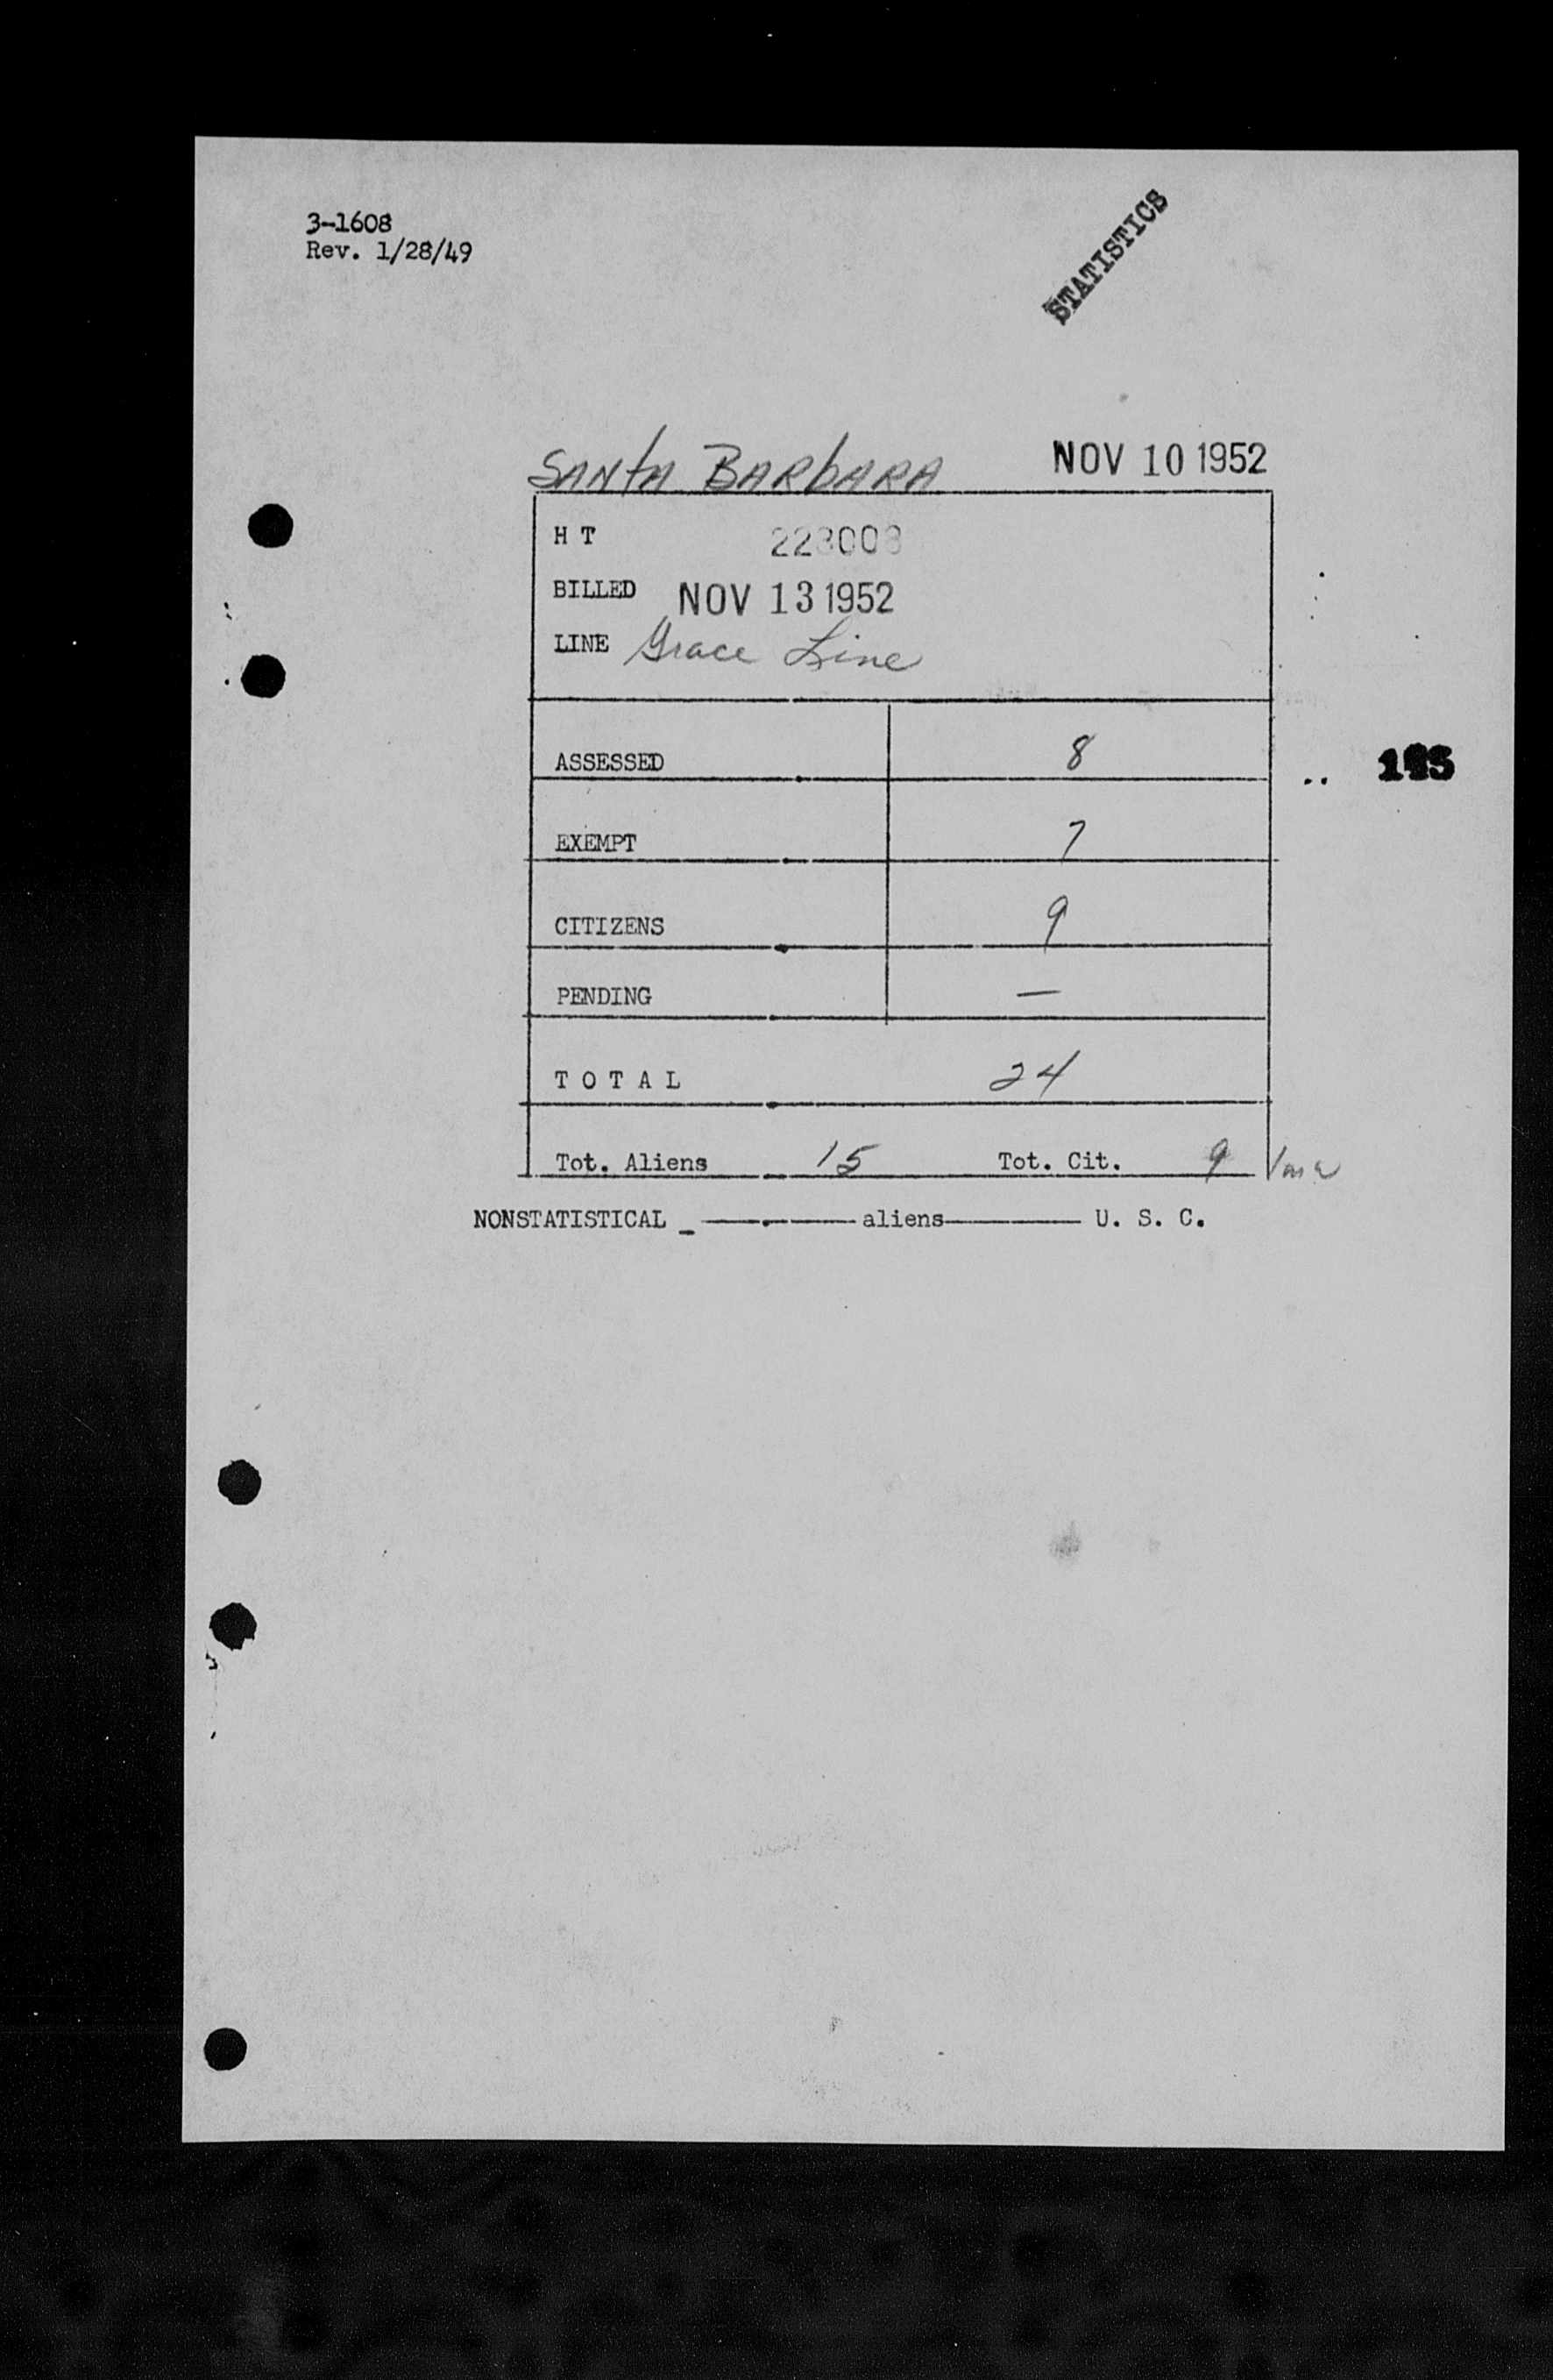 3-1608
Rev. 1/28/49
STATISTICS
SANTA BARBARA NOV 10 1952
H T
BILLED NOV 13 1952
LINE Grace Line
ASSESSED 8
EXEMPT 7
CITIZENS 9
PENDING —
TOTAL 24
Tot. Aliens 15 Tot. Cit. 9
NONSTATISTICAL _ ——.—— aliens ——— U. S. C.